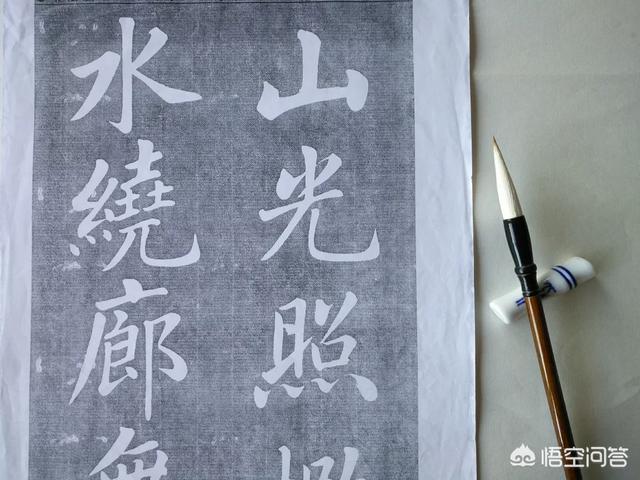 山光照
水繞廊
悟空问答